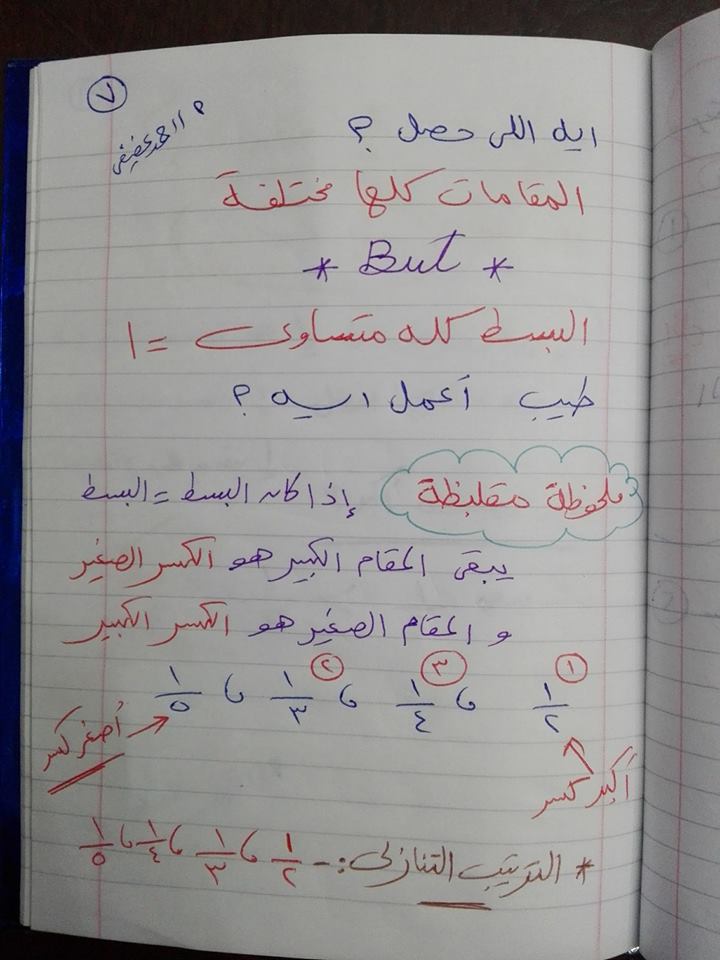 ٧
ايه اللى حصل ؟
المقامات كلها مختلفة
* But *
البسط كله متساوى = ١
طيب أعمل ايه ؟
ملحوظة متقلبظة
إذا كان البسط = البسط
يبقى المقام الكبير هو الكسر الصغير
و المقام الصغير هو الكسر الكبير
① ③ ②
١/٢ ، ١/٤ ، ١/٣ ، ١/٥
أكبر كسر
أصغر كسر
* الترتيب التنازلى :- ١/٢ ، ١/٣ ، ١/٤ ، ١/٥